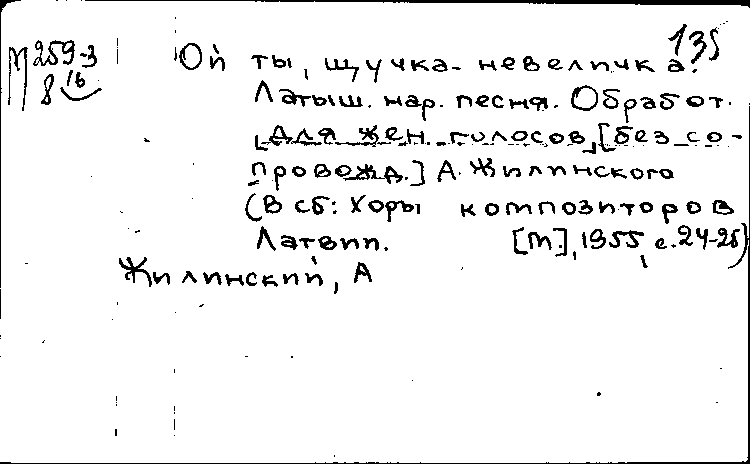 135
М 259-3
8 16
Ой ты, щучка-невеличка.
Латыш. нар. песня. Обработ.
для жен. голосов, [без со-
провожд.] А. Жилинского
(В сб: Хоры композиторов
Латвии. [М], 1955, с. 24-25)
Жилинский, А